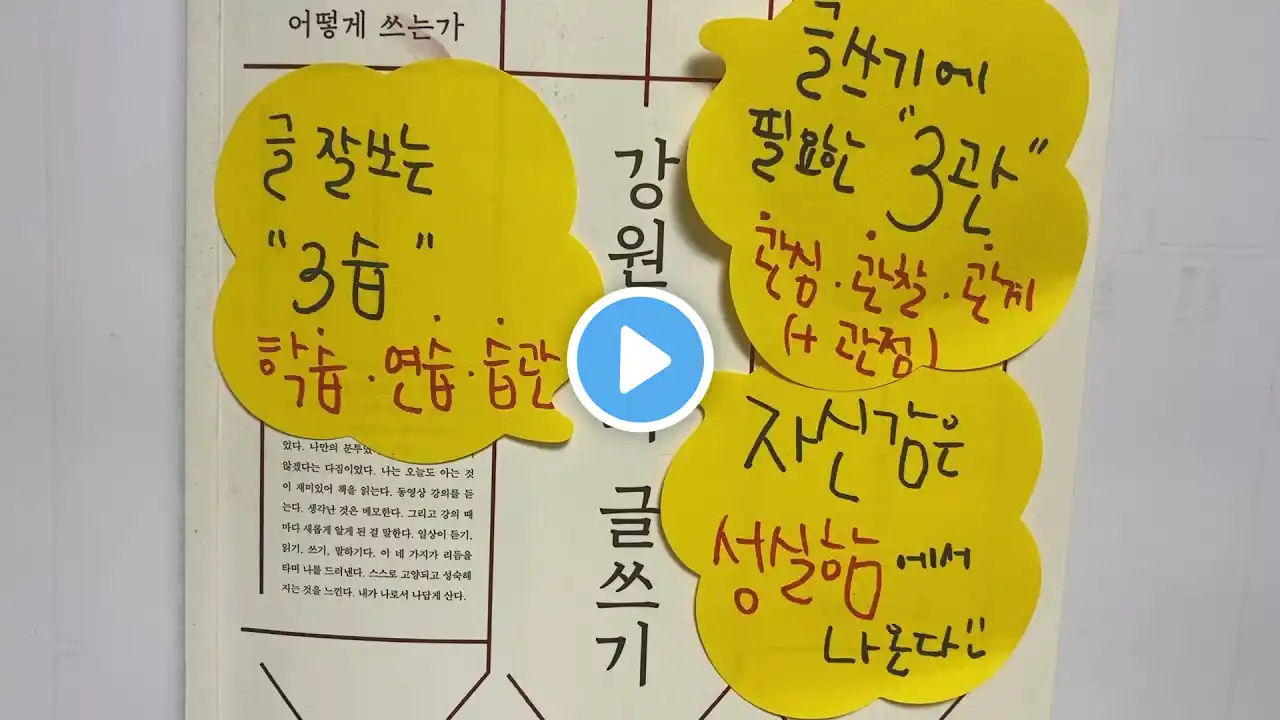 어떻게 쓰는가
글 잘쓰는
"3습"
학습·연습·습관
글쓰기에
필요한 "3관"
관심·관찰·관계
(+ 관점)
자신감은
성실함에서
나온다!!
강원
글쓰기
었다. 나만의 분투
않겠다는 다짐이었다. 나는 오늘도 아는 것
이 재미있어 책을 읽는다. 동영상 강의를 듣
는다. 생각난 것은 메모한다. 그리고 강의 때
마다 새롭게 알게 된 걸 말한다. 일상이 듣기,
읽기, 쓰기, 말하기다. 이 네 가지가 리듬을
타며 나를 드러낸다. 스스로 고양되고 성숙해
지는 것을 느낀다. 내가 나로서 나답게 산다.